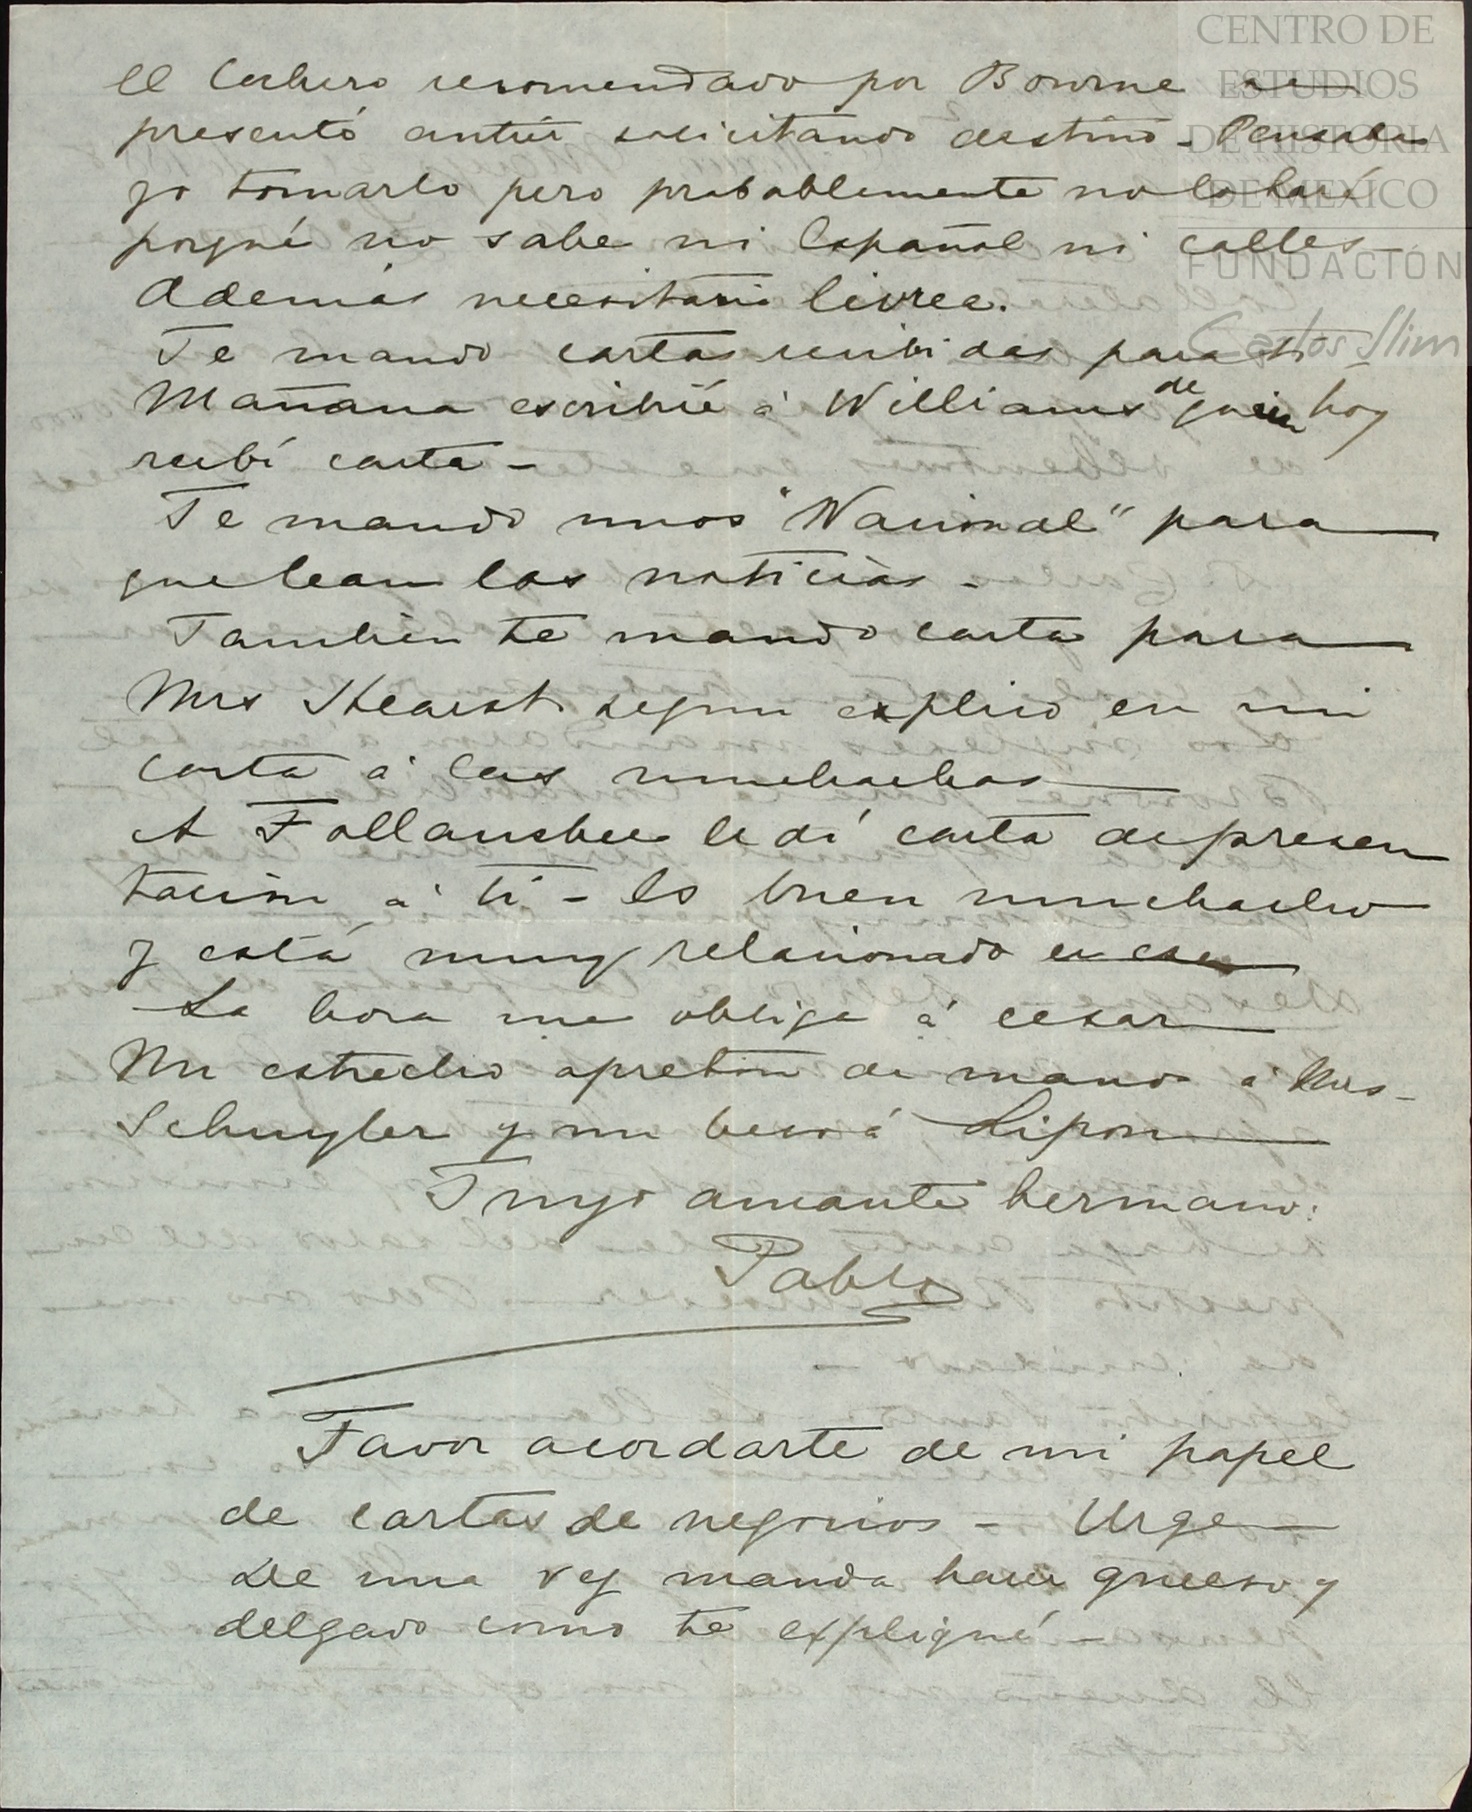 CENTRO DE
ESTUDIOS
DE HISTORIA
DE MEXICO
FUNDACIÓN
Carlos Slim
El Cochero recomendado por Bourne se
presentó antier solicitando destino - Pensaba
yo tomarlo pero probablemente no lo haré
porqué no sabe ni Español ni calles
Además necesitaria livrea.
Te mando cartas recibidas para ti -
Mañana escribiré á Williams de quien hoy
recibí carta -
Te mando unos "Nacional" para
que lean las noticias -
Tambien te mando carta para
Mrs Hearst segun explico en mi
carta á las muchachas
A Follansbee le dí carta de presen
tacion á ti - Es buen muchacho
y está muy relacionado en esa
La hora me obliga á cesar
Mi estrecho apreton de mano á Mrs -
Schuyler y mi beso á Lipon
Tuyo amante hermano:
Pablo
Favor acordarte de mi papel
de cartas de negocios - Urge
De una vez manda hacer grueso y
delgado como te expliqué -